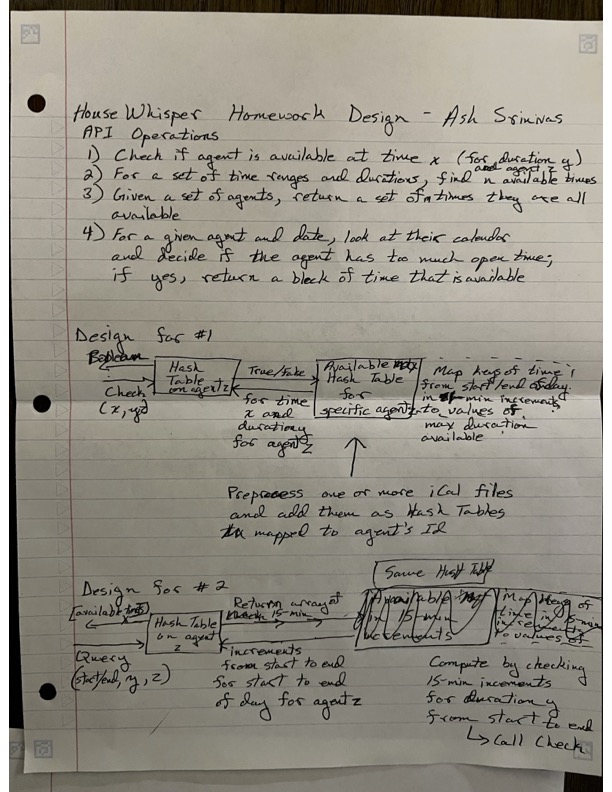 House Whisper Homework Design - Ash Srinivas
API Operations
1) Check if agent is available at time x (for duration y)
and agent z
2) For a set of time ranges and durations, find n available times
3) Given a set of agents, return a set of n times they are all
available
4) For a given agent and date, look at their calendar
and decide if the agent has too much open time;
if yes, return a block of time that is available
Design for #1
Boolean
Check
(x, y, z)
Hash
Table
on agent z
True/False
for time
x and
duration y
for agent z
Available
Hash Table
for
specific agent z
Map keys of time
from start/end of day
in -min increments
to values of
max duration
available
Preprocess one or more iCal files
and add them as Hash Tables
mapped to agent's Id
Design for #2
[available times]
Query
(start/end, y, z)
Hash Table
on agent
z
Return array of
15-min
increments
from start to end
for start to end
of day for agent z
Same Hash Table
Available
in 15-min
increments
Map keys of
time in 15-min
increments
to values of
Compute by checking
15-min increments
for duration y
from start to end
↳ Call Check